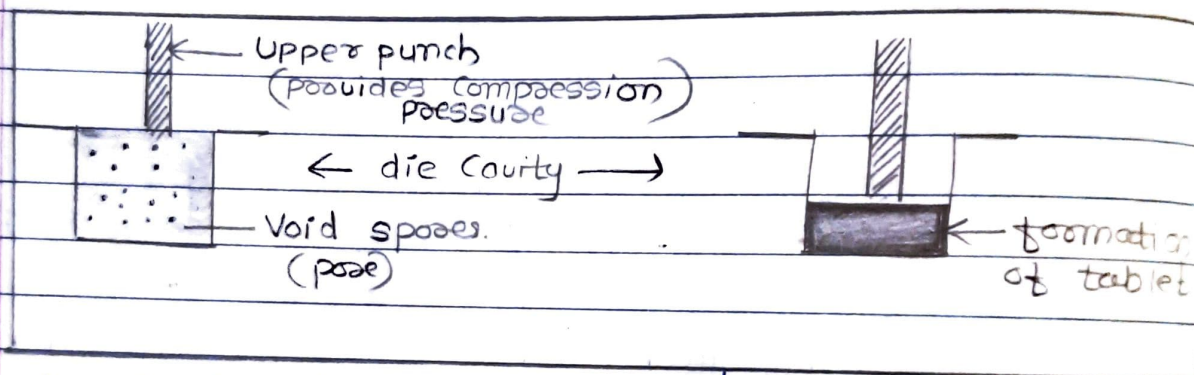 Upper punch
(provides Compression)
pressure
← die Cavity →
Void spores.
(pore)
formation
of tablet